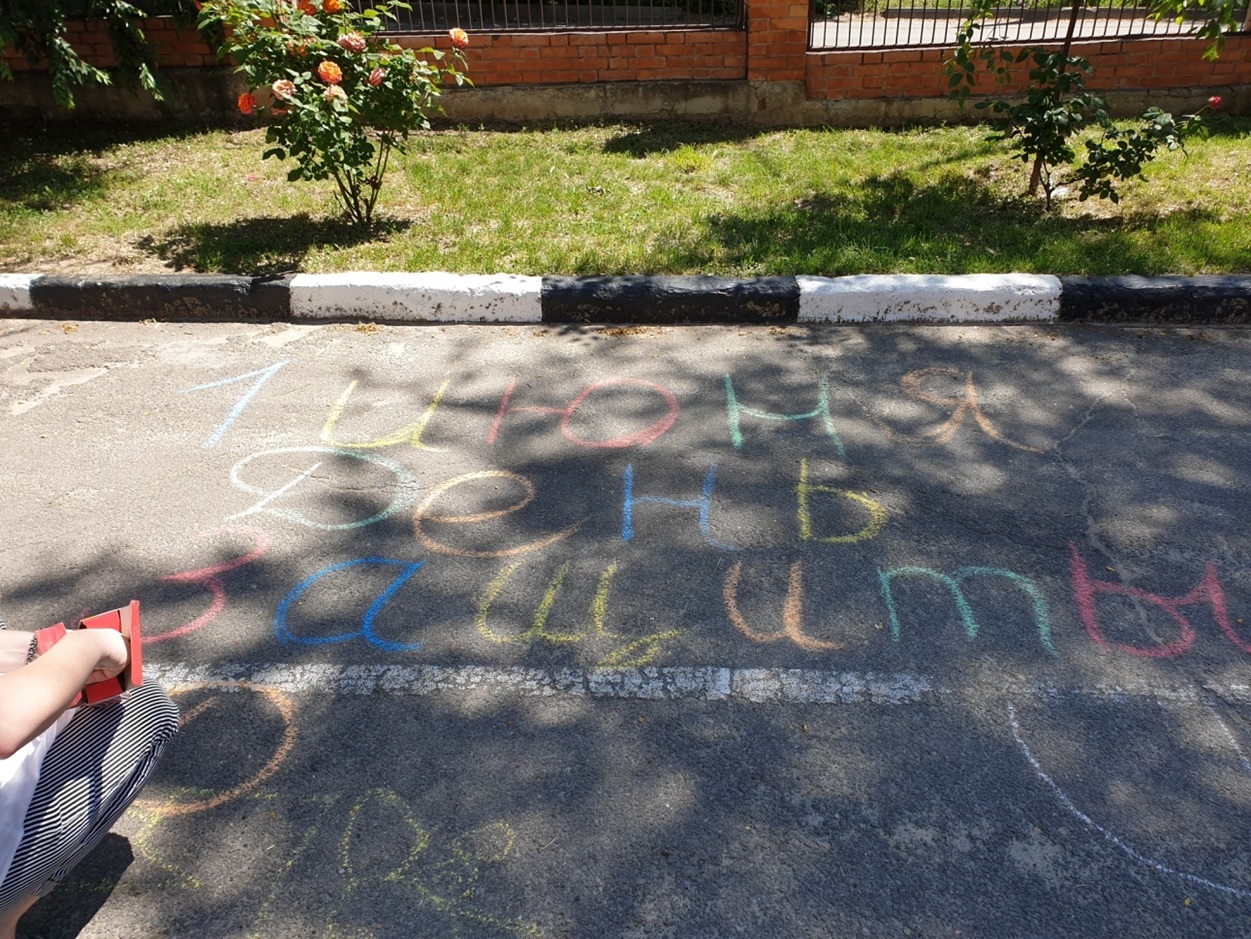 1 июня
День
защиты